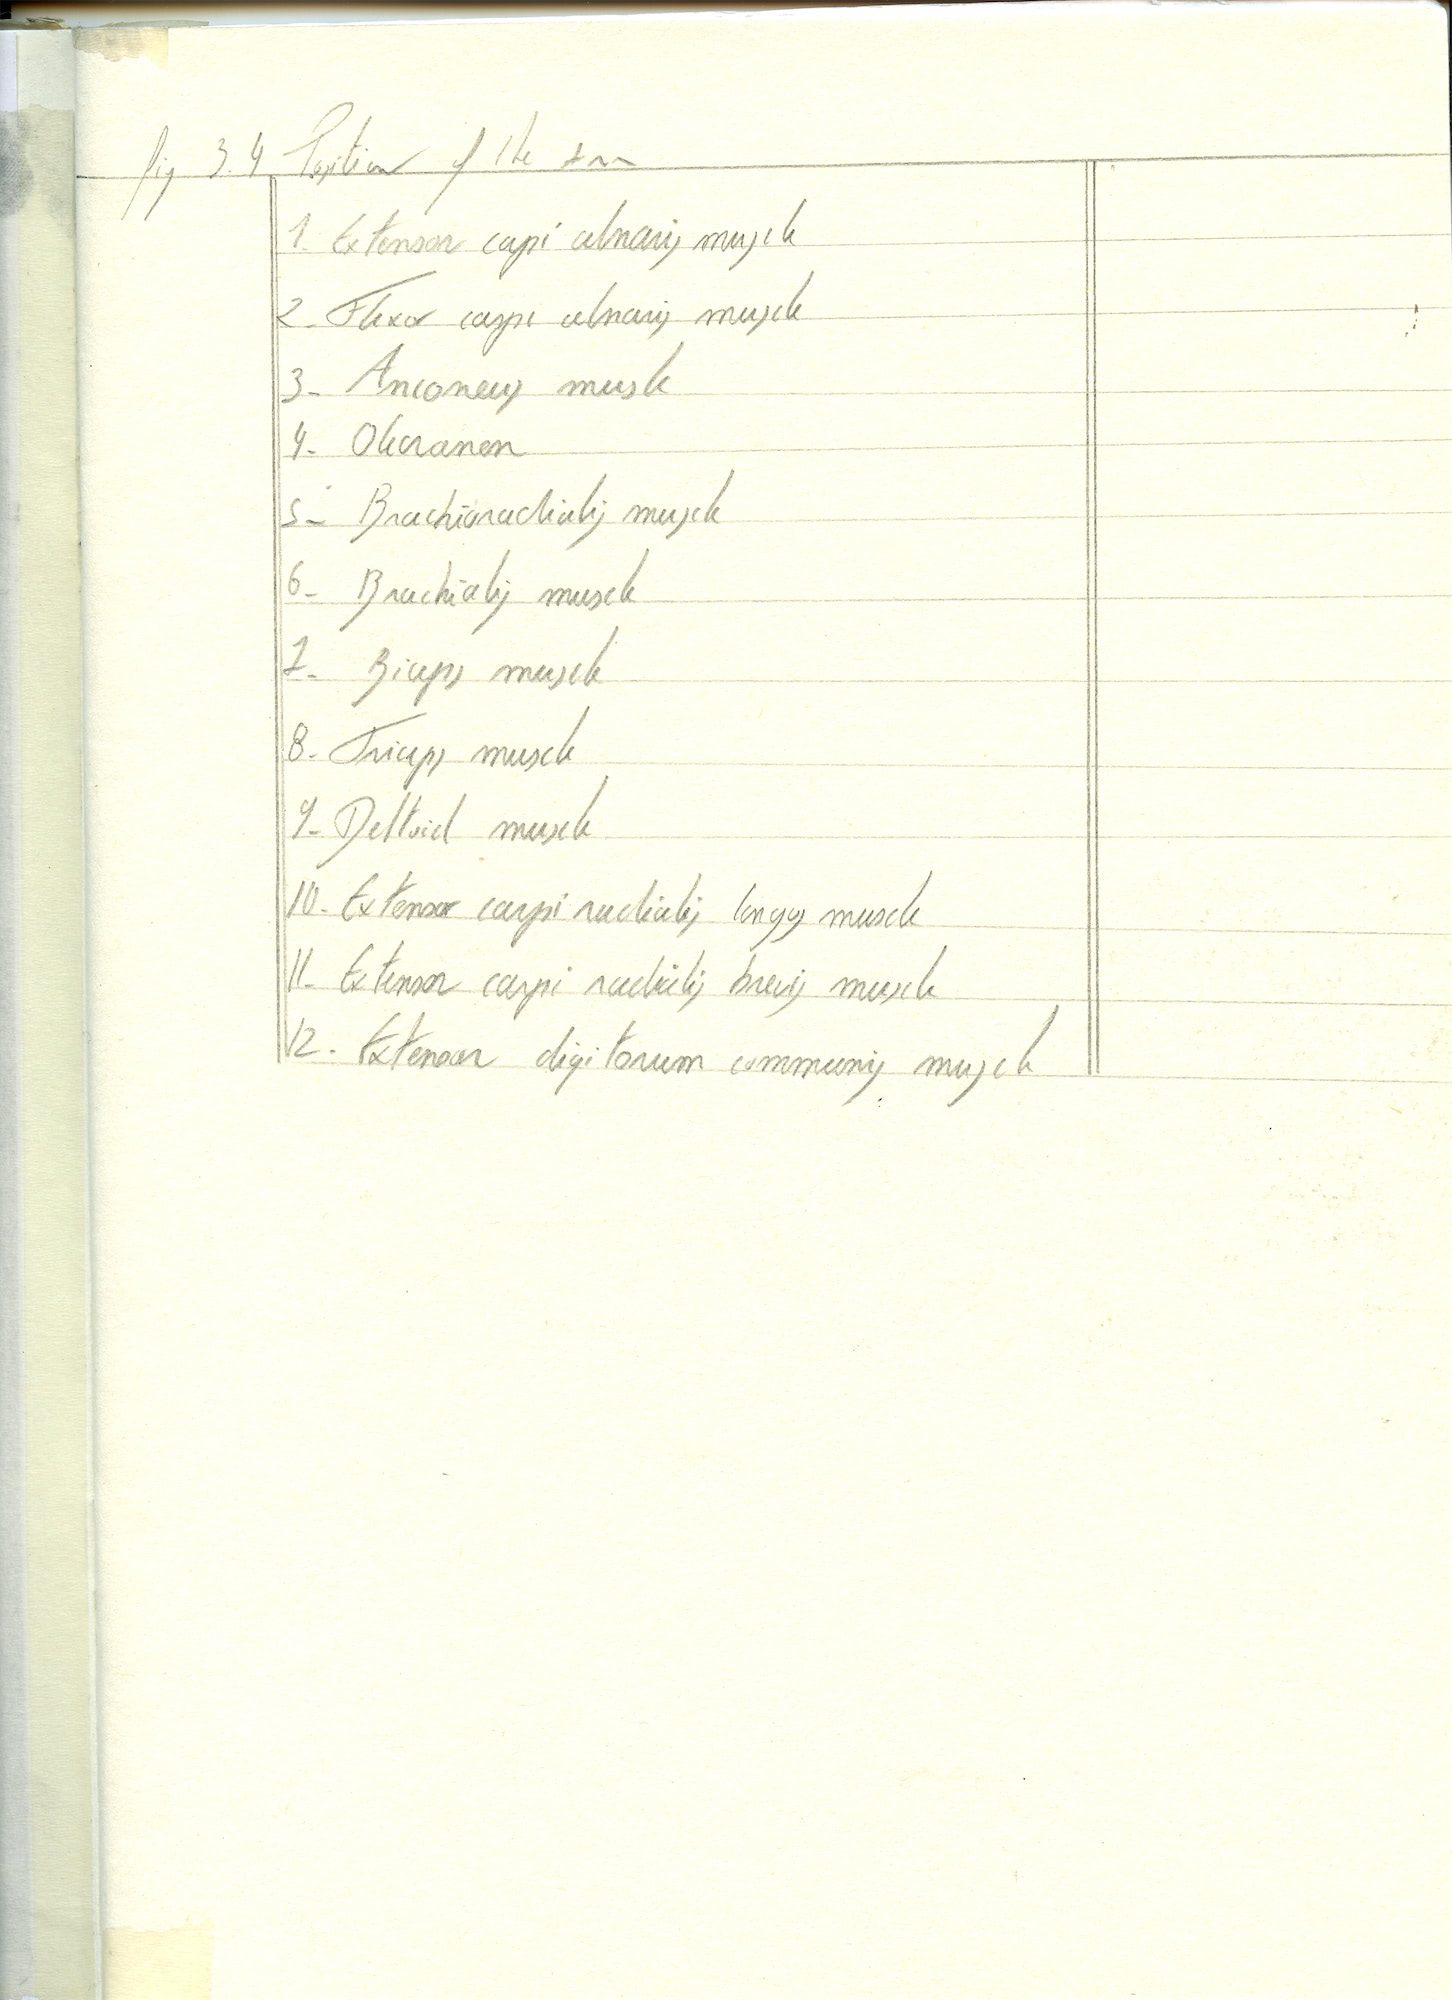 fig 3.4 Position of the arm
1. Extensor capi ulnaris muscle
2- Flexor carpi ulnaris muscle
3- Anconeus muscle
4- Olecranon
5- Brachioradialis muscle
6- Brachialis muscle
7- Biceps muscle
8- Triceps muscle
9- Deltoid muscle
10- Extensor carpi radialis longus muscle
11- Extensor carpi radialis brevis muscle
12- Extensor digitorum communis muscle